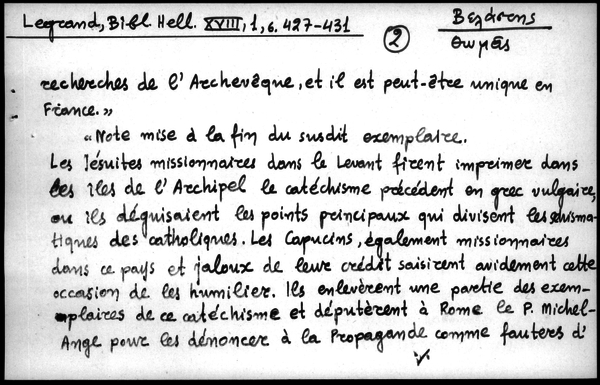 Legrand, Bibl. Hell. XVIII, 1, σ. 427-431
2
Βελάστης
Θωμᾶς
recherches de l'Archevêque, et il est peut-être unique en
France.»
«Note mise à la fin du susdit exemplaire.
Les Jésuites missionnaires dans le Levant firent imprimer dans
les îles de l'Archipel le catéchisme précédent en grec vulgaire,
ou ils déguisaient les points principaux qui divisent les schisma-
tiques des catholiques. Les Capucins, également missionnaires
dans ce pays et jaloux de leur crédit saisirent avidement cette
occasion de les humilier. Ils enlevèrent une partie des exem-
plaires de ce catéchisme et députèrent à Rome le P. Michel-
Ange pour les dénoncer à la Propagande comme fauteurs d'